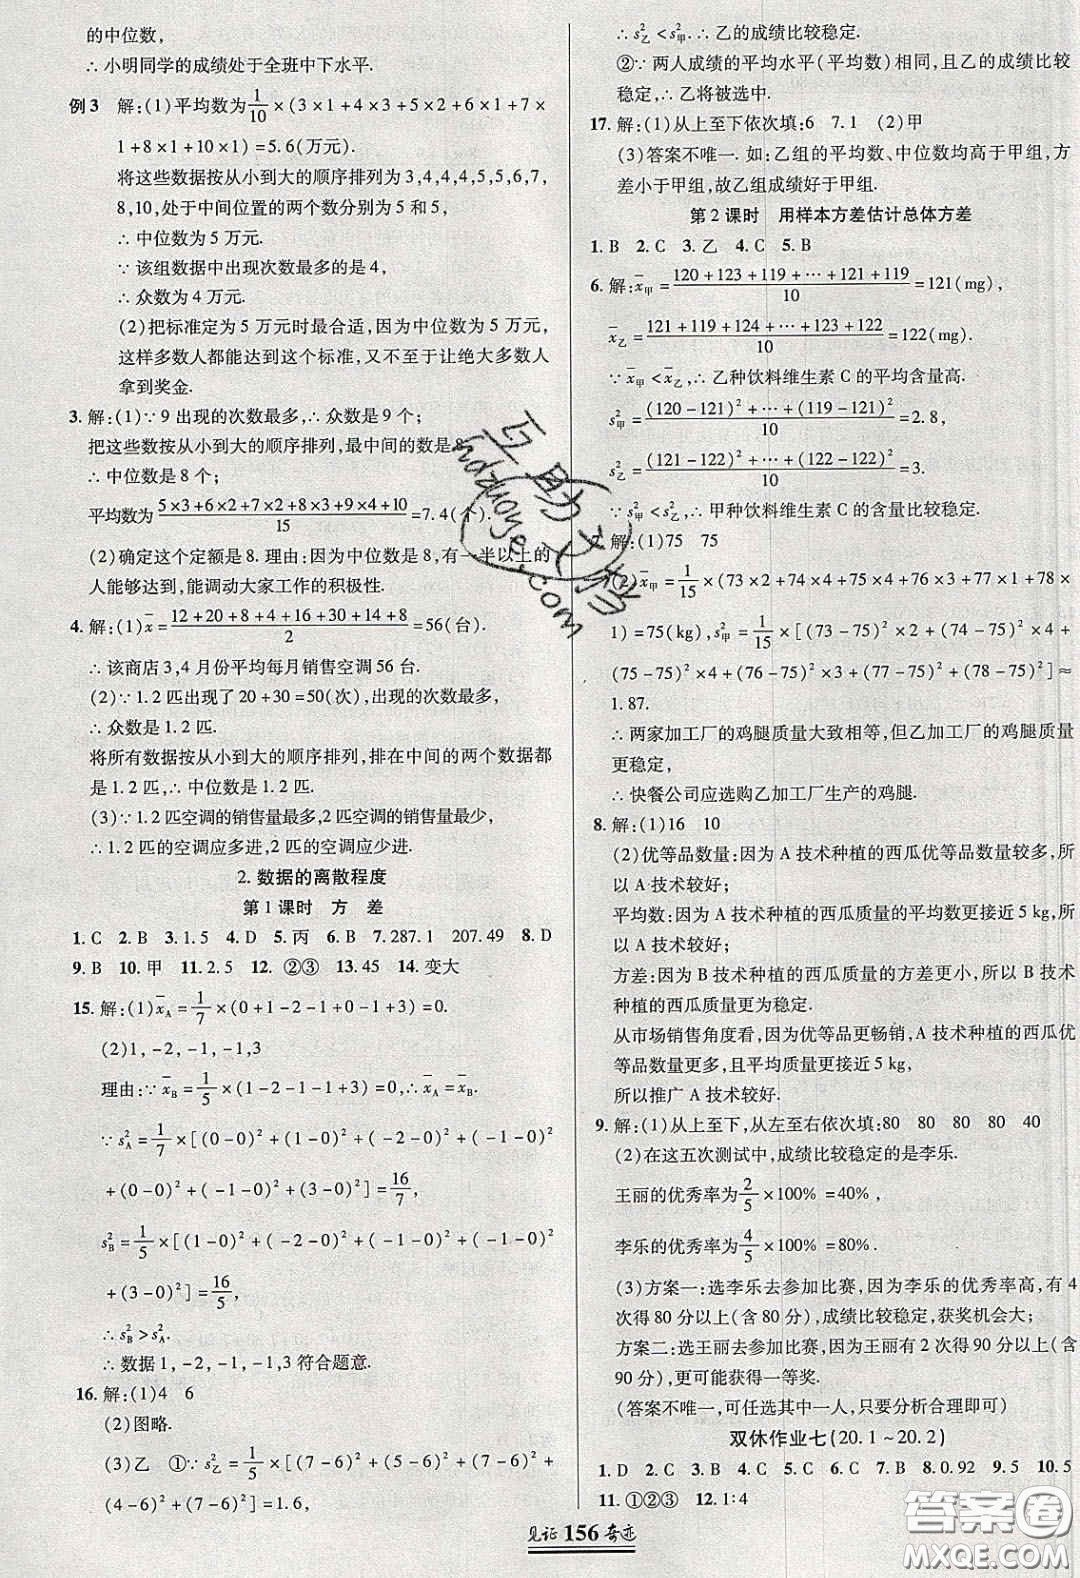 的中位数,
∴ 小明同学的成绩处于全班中下水平.
例3 解:(1)平均数为1/10×(3×1+4×3+5×2+6×1+7×
1+8×1+10×1)=5.6(万元).
将这些数据按从小到大的顺序排列为3,4,4,4,5,5,6,7,
8,10,处于中间位置的两个数分别为5和5,
∴ 中位数为5万元.
∵ 该组数据中出现次数最多的是4,
∴ 众数为4万元.
(2)把标准定为5万元时最合适,因为中位数为5万元,
这样多数人都能达到这个标准,又不至于让绝大多数人
拿到奖金.
3. 解:(1)∵9出现的次数最多,∴ 众数是9个;
把这些数按从小到大的顺序排列,最中间的数是8,
∴ 中位数是8个;
平均数为(5×3+6×2+7×2+8×3+9×4+10)/15=7.4(个).
(2)确定这个定额是8.理由:因为中位数是8,有一半以上的
人能够达到,能调动大家工作的积极性.
4. 解:(1)x̄=(12+20+8+4+16+30+14+8)/2=56(台).
∴ 该商店3,4月份平均每月销售空调56台.
(2)∵1.2匹出现了20+30=50(次),出现的次数最多,
∴ 众数是1.2匹.
将所有数据按从小到大的顺序排列,排在中间的两个数据都
是1.2匹,∴ 中位数是1.2匹.
(3)∵1.2匹空调的销售量最多,2匹空调的销售量最少,
∴ 1.2匹的空调应多进,2匹的空调应少进.
2. 数据的离散程度
第1课时 方 差
1. C 2. B 3. 1.5 4. D 5. 丙 6. B 7. 287.1 207.49 8. D
9. B 10. 甲 11. 2.5 12. ②③ 13. 45 14. 变大
15. 解:(1)x̄A=1/7×(0+1-2-1+0-1+3)=0.
(2)1,-2,-1,-1,3
理由:∵x̄B=1/5×(1-2-1-1+3)=0,∴x̄A=x̄B.
∵s²A=1/7×[(0-0)²+(1-0)²+(-2-0)²+(-1-0)²
+(0-0)²+(-1-0)²+(3-0)²]=16/7,
s²B=1/5×[(1-0)²+(-2-0)²+(-1-0)²+(-1-0)²
+(3-0)²]=16/5,
∴s²B>s²A.
∴ 数据1,-2,-1,-1,3符合题意.
16. 解:(1)4 6
(2)图略.
(3)乙 ①∵s²乙=1/5×[(7-6)²+(5-6)²+(7-6)²+
(4-6)²+(7-6)²]=1.6,
∴s²乙<s²甲.∴ 乙的成绩比较稳定.
②∵ 两人成绩的平均水平(平均数)相同,且乙的成绩比较
稳定,∴ 乙将被选中.
17. 解:(1)从上至下依次填:6 7.1 (2)甲
(3)答案不唯一. 如:乙组的平均数、中位数均高于甲组,方
差小于甲组,故乙组成绩好于甲组.
第2课时 用样本方差估计总体方差
1. B 2. C 3. 乙 4. C 5. B
6. 解:x̄甲=(120+123+119+…+121+119)/10=121(mg),
x̄乙=(121+119+124+…+123+122)/10=122(mg).
∵x̄甲<x̄乙,∴ 乙种饮料维生素C的平均含量高.
s²甲=((120-121)²+…+(119-121)²)/10=2.8,
s²乙=((121-122)²+…+(122-122)²)/10=3.
∵s²甲<s²乙,∴ 甲种饮料维生素C的含量比较稳定.
7. 解:(1)75 75
(2)x̄甲=1/15×(73×2+74×4+75×4+76×3+77×1+78×
1)=75(kg),s²甲=1/15×[(73-75)²×2+(74-75)²×4+
(75-75)²×4+(76-75)²×3+(77-75)²+(78-75)²]≈
1.87.
∴ 两家加工厂的鸡腿质量大致相等,但乙加工厂的鸡腿质量
更稳定,
∴ 快餐公司应选购乙加工厂生产的鸡腿.
8. 解:(1)16 10
(2)优等品数量:因为A技术种植的西瓜优等品数量较多,所
以A技术较好;
平均数:因为A技术种植的西瓜质量的平均数更接近5 kg,所
以A技术较好;
方差:因为B技术种植的西瓜质量的方差更小,所以B技术
种植的西瓜质量更为稳定.
从市场销售角度看,因为优等品更畅销,A技术种植的西瓜优
等品数量更多,且平均质量更接近5 kg,
所以推广A技术较好.
9. 解:(1)从上至下,从左至右依次填:80 80 80 80 40
(2)在这五次测试中,成绩比较稳定的是李乐.
王丽的优秀率为2/5×100%=40%,
李乐的优秀率为4/5×100%=80%.
(3)方案一:选李乐去参加比赛,因为李乐的优秀率高,有4
次得80分以上(含80分),成绩比较稳定,获奖机会大;
方案二:选王丽去参加比赛,因为王丽有2次得90分以上(含
90分),更可能获得一等奖.
(答案不唯一,可任选其中一人,只要分析合理即可)
双休作业七(20.1~20.2)
1. D 2. C 3. C 4. B 5. B 6. B 7. 乙 8. 0.92 9. 5 10. 5
11. ①②③ 12. 1:4
见证156奇迹
互助文档
hdzuoye.com
答案圈
MXQE.COM